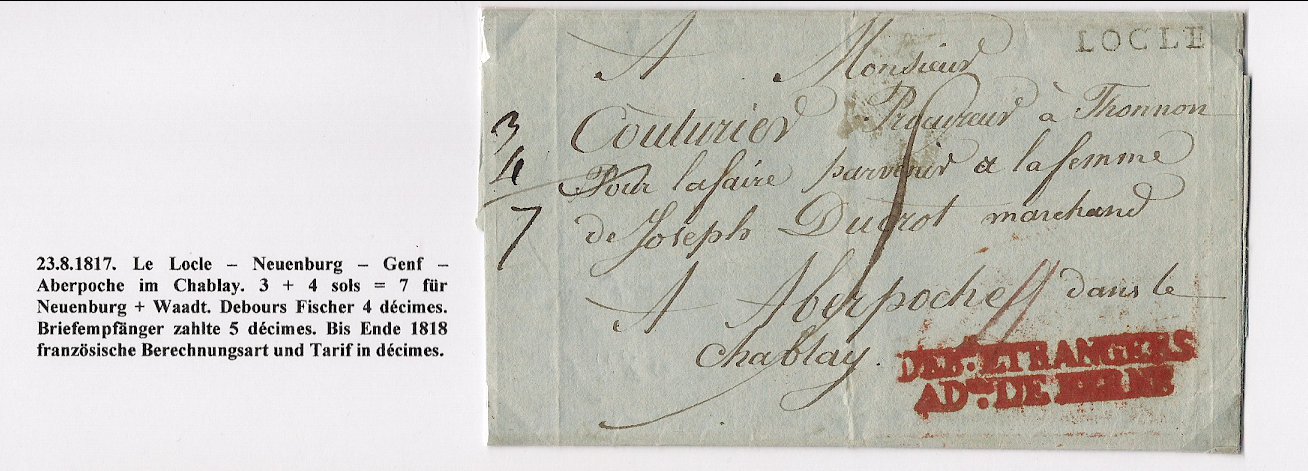 23.8.1817. Le Locle – Neuenburg – Genf –
Aberpoche im Chablay. 3 + 4 sols = 7 für
Neuenburg + Waadt. Debours Fischer 4 décimes.
Briefempfänger zahlte 5 décimes. Bis Ende 1818
französische Berechnungsart und Tarif in décimes.
LOCLE
A Monsieur
Couturier Procureur à Thonnon
Pour lafaire parvenir a lafemme
de Joseph Ducrot marchand
A Aberpoche dans le
Chablay.
3
4
7
DEB. ETRANGERS
ADon. DE BERNE